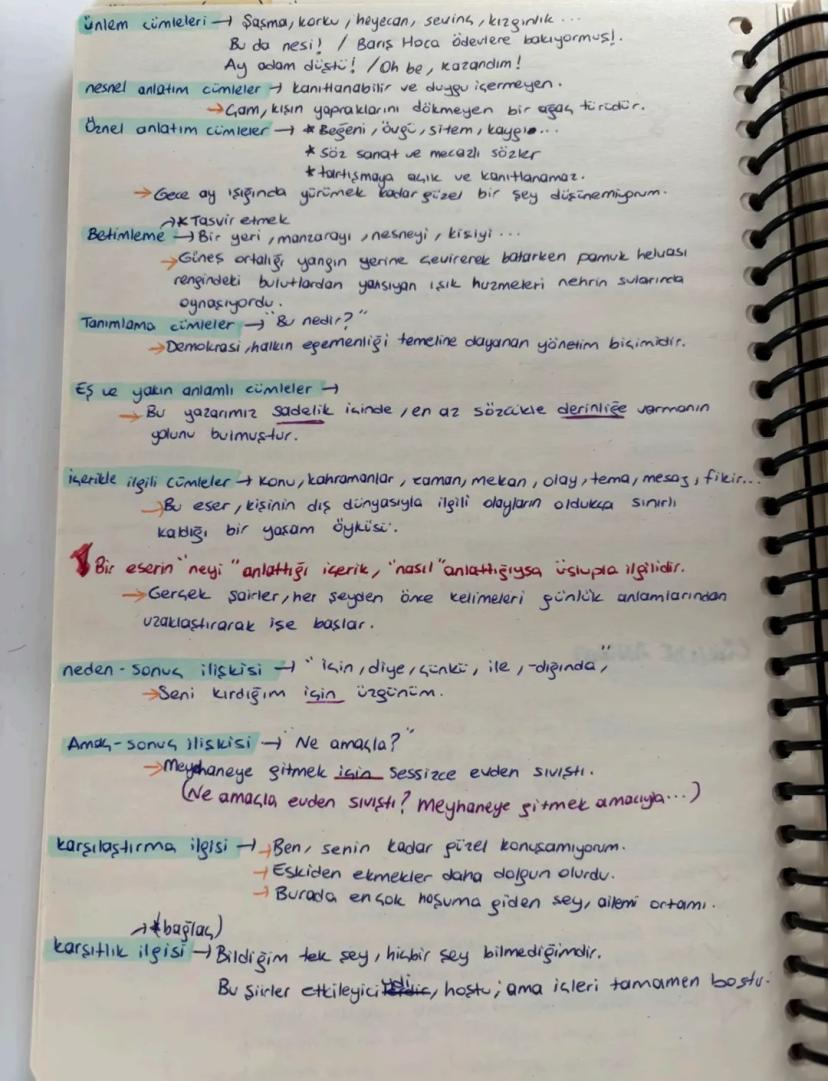 ünlem cümleleri → Şaşma, korku, heyecan, sevinç, kızgınlık ...
Bu da nesi! / Barış Hoca ödevlere bakıyormuş!.
Ay adam düştü! / Oh be, kazandım!
nesnel anlatım cümleler → kanıtlanabilir ve duygu içermeyen.
→ Çam, kışın yapraklarını dökmeyen bir ağaç türüdür.
Öznel anlatım cümleler → * Beğeni, övgü, sitem, kaygı...
* söz sanat ve mecazlı sözler
* tartışmaya açık ve kanıtlanamaz.
→ Gece ay ışığında yürümek kadar güzel bir şey düşünemiyorum.
→ * Tasvir etmek
Betimleme → Bir yeri, manzarayı, nesneyi, kişiyi ...
→ Güneş ortalığı yangın yerine çevirerek batarken pamuk helvası
rengindeki bulutlardan yansıyan ışık huzmeleri nehrin sularında
oynaşıyordu.
Tanımlama cümleler → "Bu nedir?"
→ Demokrasi, halkın egemenliği temeline dayanan yönetim biçimidir.
Eş ve yakın anlamlı cümleler →
→ Bu yazarımız sadelik içinde, en az sözcükle derinliğe varmanın
yolunu bulmuştur.
içerikle ilgili cümleler → konu, kahramanlar, zaman, mekan, olay, tema, mesaj, fikir...
→ Bu eser, kişinin dış dünyasıyla ilgili olayların oldukça sınırlı
kaldığı bir yaşam öyküsü.
Bir eserin "neyi" anlattığı içerik, "nasıl" anlattığıysa üslupla ilgilidir.
→ Gerçek şairler, her şeyden önce kelimeleri günlük anlamlarından
uzaklaştırarak işe başlar.
neden-sonuç ilişkisi → "için, diye, çünkü, ile, -dığında"
→ Seni kırdığım için üzgünüm.
Amaç-sonuç ilişkisi → "Ne amaçla?"
→ Meyhaneye gitmek için sessizce evden sıvıştı.
(Ne amaçla evden sıvıştı? Meyhaneye gitmek amacıyla...)
karşılaştırma ilgisi → → Ben, senin kadar güzel konuşamıyorum.
→ Eskiden ekmekler daha dolgun olurdu.
→ Burada en çok hoşuma giden şey, ailemi ortamı.
→ * (bağlaç)
karşıtlık ilgisi → Bildiğim tek şey, hiçbir şey bilmediğimdir.
Bu şiirler etkileyici , hoştu; ama içleri tamamen boştu.